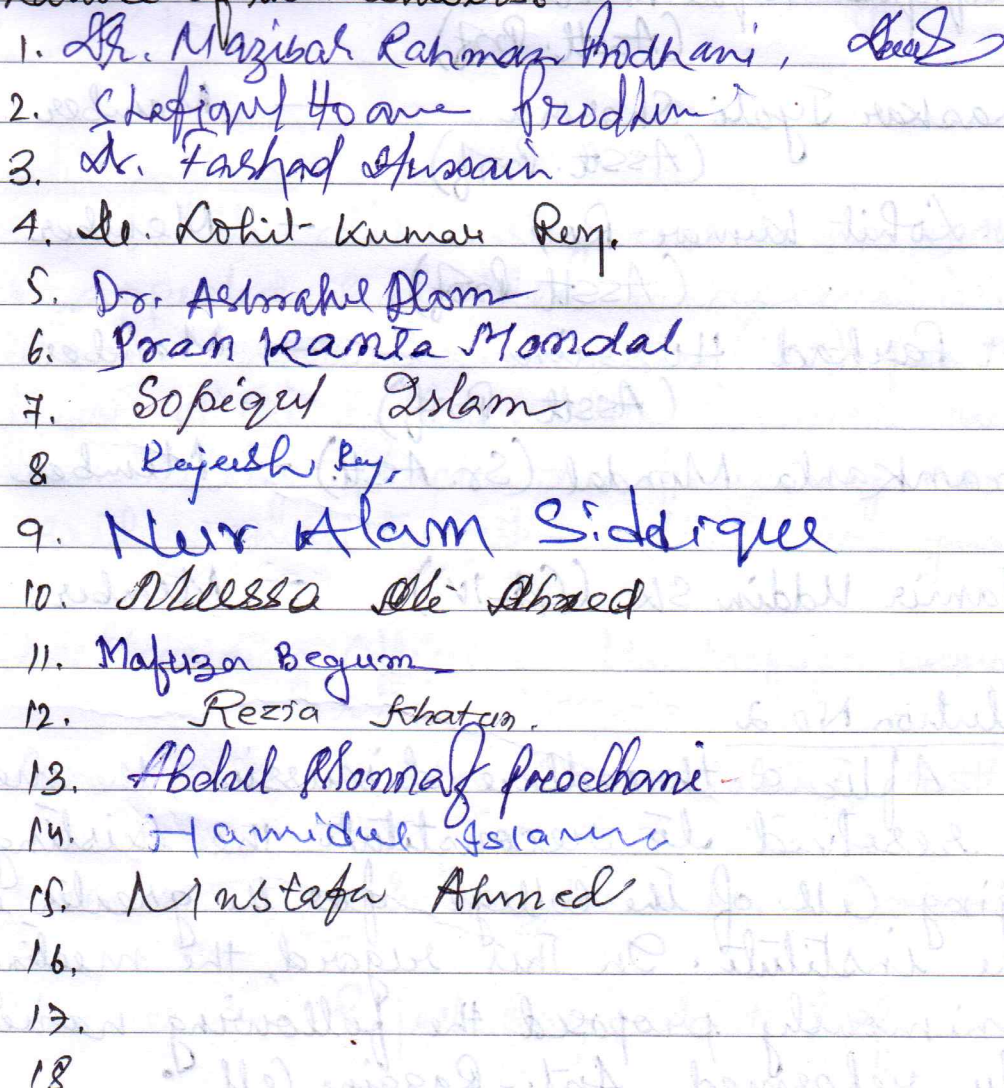 1. Dr. Mazibar Rahman Prodhani,
2. Shafiqul Hoque Prodhan
3. Dr. Farhad Hussain
4. Dr. Lohit Kumar Roy.
5. Dr. Ashraful Alom
6. Pran Kanta Mondal
7. Sopiqul Islam
8 Rajesh Ray.
9. Nur Alam Siddique
10. Mussa Ali Ahmed
11. Mafuza Begum
12. Rezia Khatun.
13. Abdul Monnaf Prodhani
14. Hamidul Islam
15. Mustafa Ahmed
16.
17.
18